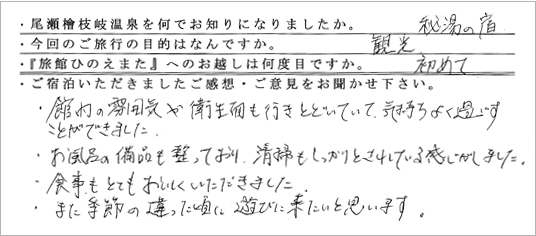 ・尾瀬檜枝岐温泉を何でお知りになりましたか。 秘湯の宿
・今回のご旅行の目的はなんですか。 観光
・『旅館ひのえまた』へのお越しは何度目ですか。 初めて
・ご宿泊いただきましたご感想・ご意見をお聞かせ下さい。
・館内の雰囲気や衛生面も行きとどいていて、気持ちよく過ごす
ことができました。
・お風呂の備品も整っており、清掃もしっかりとされている感じがしました。
・食事もとてもおいしくいただきました。
・また季節の違った頃に遊びに来たいと思います。